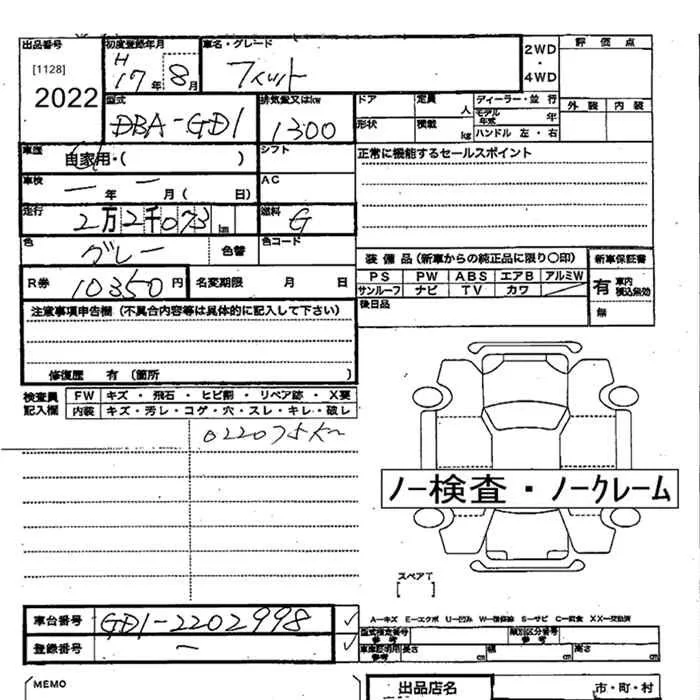 出品番号 初度登録年月 車名・グレード 2WD ・ 4WD 評価点
[1128] H17年 8月 フィット 外装 内装
2022
型式 排気量又はkw ドア 定員 人 ディーラー・並行
DBA-GD1 1300 モデル年式 年
形状 積載 kg ハンドル 左・右
車歴 自家用・( ) シフト 正常に機能するセールスポイント
車検 ー年 ー月( 日) AC
走行 2万2千073 km 燃料 G
色 グレー 色替 色コード
装備品(新車からの純正品に限り○印) 新車保証書
R券 10350円 名変期限 月 日 PS PW ABS エアB アルミW 有 車内積込無効
サンルーフ ナビ TV カワ
注意事項申告欄(不具合内容等は具体的に記入して下さい) 後日品 無
修復歴 有(箇所 )
検査員記入欄 FW キズ・飛石・ヒビ割・リペア跡・X要
内装 キズ・汚レ・コゲ・穴・スレ・キレ・破レ
022075km
ノー検査・ノークレーム
スペアT
[ ]
車台番号 GD1-2202998 A-キズ E-エクボ U-凹み W-補修跡 S-サビ C-腐食 XX-交換済
型式指定番号 参考 類別区分番号 参考
登録番号 ー 車庫証明用参考 長さ cm 幅 cm 高さ cm
MEMO 出品店名 市・町・村